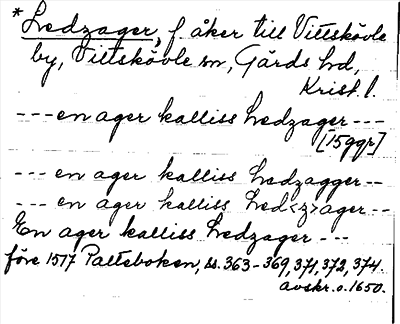 * Ledzager, f. åker till Vittskövle
by, Vittskövle sn, Gärds hd,
Krist. l.
--- en ager kalliss Ledzager ---
[15ggr]
--- en ager kalliss Ledzagger --
--- en ager kalliss Led<z>ager --
En ager kalliss Ledzager ---
före 1517 Palteboken, ss. 363-369, 371, 372, 374.
avskr. o. 1650.